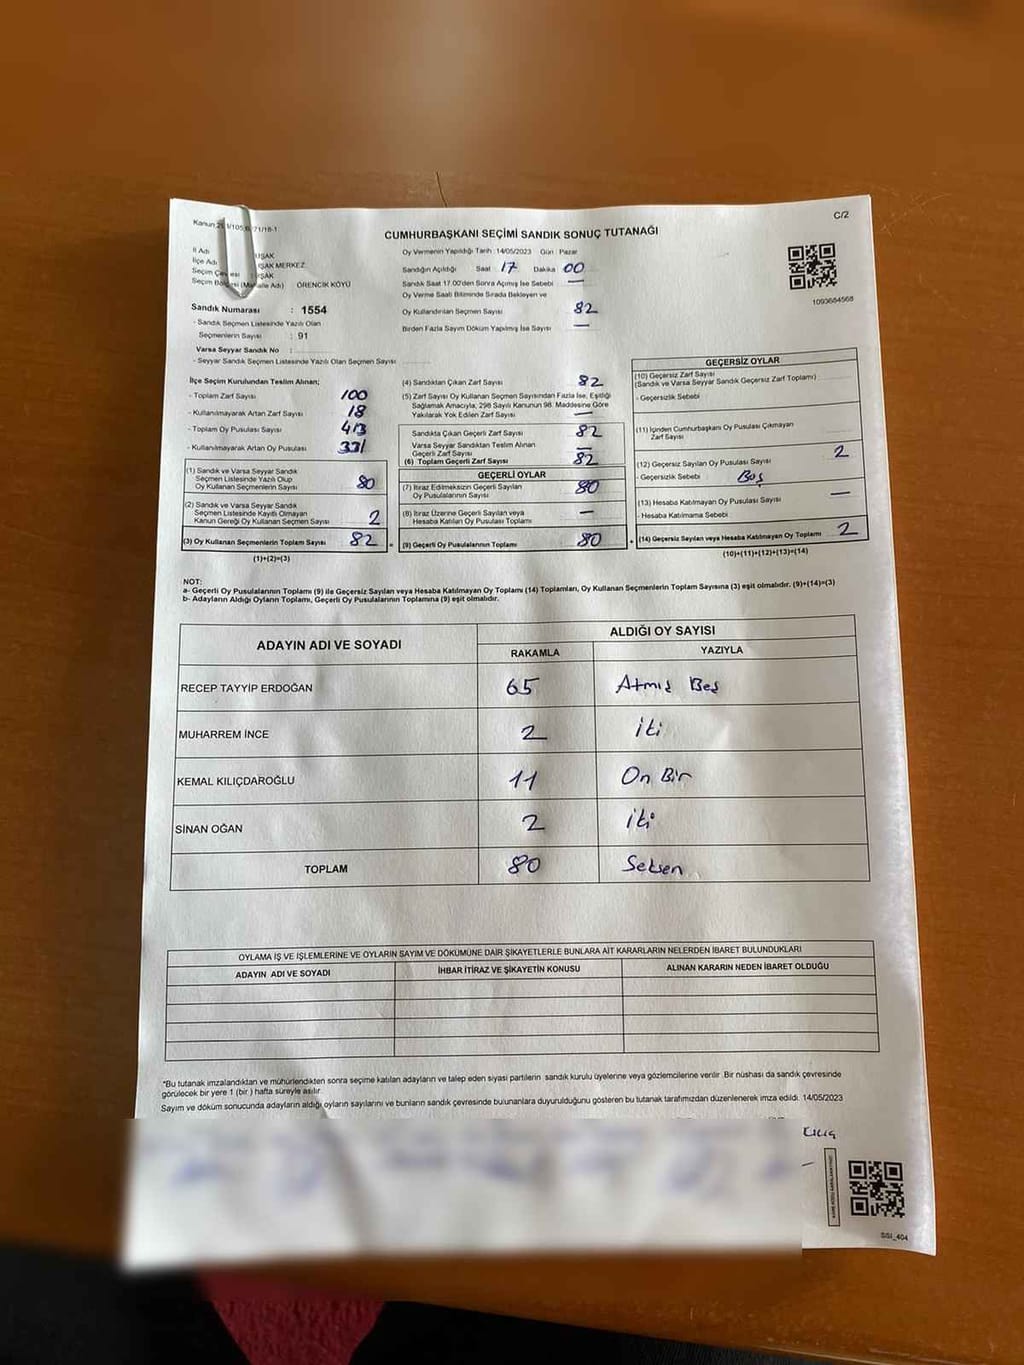 C/2
CUMHURBAŞKANI SEÇİMİ SANDIK SONUÇ TUTANAĞI
İl Adı UŞAK
İlçe Adı UŞAK MERKEZ
Seçim Çevresi UŞAK
Seçim Bölgesi (Mahalle Adı) ÖRENCİK KÖYÜ
Sandık Numarası : 1554
- Sandık Seçmen Listesinde Yazılı Olan
Seçmenlerin Sayısı : 91
Varsa Seyyar Sandık No :
- Seyyar Sandık Seçmen Listesinde Yazılı Olan Seçmen Sayısı
Oy Vermenin Yapıldığı Tarih :14/05/2023 Gün : Pazar
Sandığın Açıldığı Saat 17 Dakika 00
Sandık Saat 17.00'den Sonra Açımış İse Sebebi —
Oy Verme Saati Bitiminde Sırada Bekleyen ve
Oy Kullandırılan Seçmen Sayısı 82
Birden Fazla Sayım Döküm Yapılmış İse Sayısı —
1093684568
İlçe Seçim Kurulundan Teslim Alınan;
- Toplam Zarf Sayısı 100
- Kullanılmayarak Artan Zarf Sayısı 18
- Toplam Oy Pusulası Sayısı 413
- Kullanılmayarak Artan Oy Pusulası 331
(1) Sandık ve Varsa Seyyar Sandık
Seçmen Listesinde Yazılı Olup
Oy Kullanan Seçmenlerin Sayısı 80
(2) Sandık ve Varsa Seyyar Sandık
Seçmen Listesinde Kayıtlı Olmayan
Kanun Gereği Oy Kullanan Seçmen Sayısı 2
(3) Oy Kullanan Seçmenlerin Toplam Sayısı 82
(1)+(2)=(3)
(4) Sandıktan Çıkan Zarf Sayısı 82
(5) Zarf Sayısı Oy Kullanan Seçmen Sayısından Fazla İse, Eşitliği
Sağlamak Amacıyla, 298 Sayılı Kanunun 98. Maddesine Göre
Yakılarak Yok Edilen Zarf Sayısı —
Sandıkta Çıkan Geçerli Zarf Sayısı 82
Varsa Seyyar Sandıktan Teslim Alınan
Geçerli Zarf Sayısı —
(6) Toplam Geçerli Zarf Sayısı 82
GEÇERLİ OYLAR
(7) İtiraz Edilmeksizin Geçerli Sayılan
Oy Pusulalarının Sayısı 80
(8) İtiraz Üzerine Geçerli Sayılan veya
Hesaba Katılan Oy Pusulası Toplamı —
(9) Geçerli Oy Pusulalarının Toplamı 80
GEÇERSİZ OYLAR
(10) Geçersiz Zarf Sayısı
(Sandık ve Varsa Seyyar Sandık Geçersiz Zarf Toplamı)
- Geçersizlik Sebebi
(11) İçinden Cumhurbaşkanı Oy Pusulası Çıkmayan
Zarf Sayısı
(12) Geçersiz Sayılan Oy Pusulası Sayısı 2
- Geçersizlik Sebebi Boş
(13) Hesaba Katılmayan Oy Pusulası Sayısı —
- Hesaba Katılmama Sebebi
(14) Geçersiz Sayılan veya Hesaba Katılmayan Oy Toplamı 2
(10)+(11)+(12)+(13)=(14)
NOT:
a- Geçerli Oy Pusulalarının Toplamı (9) ile Geçersiz Sayılan veya Hesaba Katılmayan Oy Toplamı (14) Toplamları, Oy Kullanan Seçmenlerin Toplam Sayısına (3) eşit olmalıdır. (9)+(14)=(3)
b- Adayların Aldığı Oyların Toplamı, Geçerli Oy Pusulalarının Toplamına (9) eşit olmalıdır.
ADAYIN ADI VE SOYADI ALDIĞI OY SAYISI
RAKAMLA YAZIYLA
RECEP TAYYİP ERDOĞAN 65 Atmış Beş
MUHARREM İNCE 2 İki
KEMAL KILIÇDAROĞLU 11 On Bir
SİNAN OĞAN 2 İki
TOPLAM 80 Seksen
OYLAMA İŞ VE İŞLEMLERİNE VE OYLARIN SAYIM VE DÖKÜMÜNE DAİR ŞİKAYETLERLE BUNLARA AİT KARARLARIN NELERDEN İBARET BULUNDUKLARI
ADAYIN ADI VE SOYADI İHBAR İTİRAZ VE ŞİKAYETİN KONUSU ALINAN KARARIN NEDEN İBARET OLDUĞU
*Bu tutanak imzalandıktan ve mühürlendikten sonra seçime katılan adayların ve talep eden siyasi partilerin sandık kurulu üyelerine veya gözlemcilerine verilir .Bir nüshası da sandık çevresinde
görülecek bir yere 1 (bir ) hafta süreyle asılır
Sayım ve döküm sonucunda adayların aldığı oyların sayılarını ve bunların sandık çevresinde bulunanlara duyurulduğunu gösteren bu tutanak tarafımızdan düzenlenerek imza edildi. 14/05/2023
SSI_404